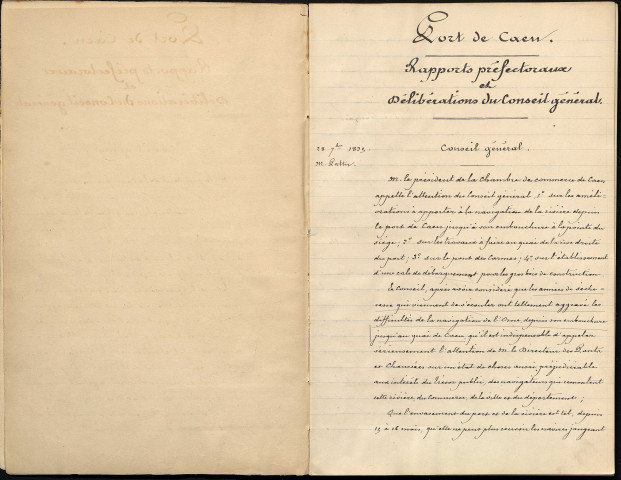 Port de Caen.
Rapports préfectoraux
et
Délibérations du Conseil général.
28 7bre 1835
M. Lattu.
Conseil général.
M. le président de la Chambre de commerce de Caen
appelle l'attention du Conseil général, 1° sur les améli-
orations à apporter à la navigation de la rivière depuis
le port de Caen jusqu'à son embouchure à la pointe du
siège; 2° sur les travaux à faire au quai de la rive droite
du port; 3° sur le pont des Carmes; 4° sur l'établissement
d'une cale de débarquement pour les gros bois de construction.
Le Conseil, après avoir considéré que les années de séche-
resse qui viennent de s'écouler ont tellement aggravé les
difficultés de la navigation de l'Orne, depuis son embouchure
jusqu'au quai de Caen, qu'il est indispensable d'appeler
sérieusement l'attention de M. le Directeur des Ponts
et Chaussées sur un état de choses aussi préjudiciable
aux intérêts du trésor public, des navigateurs qui remontent
cette rivière, du commerce de la ville et du département;
Que l'envasement du port et de la rivière est tel, depuis
15 à 16 mois, qu'elle ne peut plus recevoir les navires jaugeant